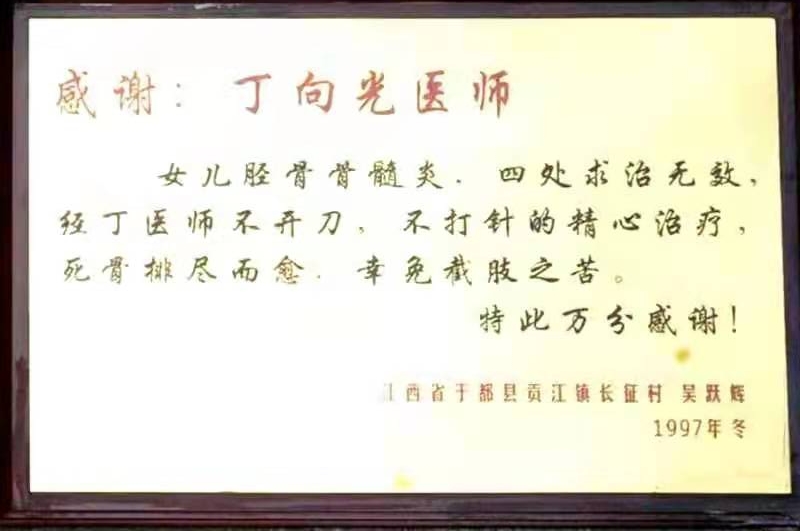 感谢：丁向光医师
女儿胫骨骨髓炎．四处求治无效，
经丁医师不开刀，不打针的精心治疗，
死骨排尽而愈．幸免截肢之苦。
特此万分感谢！
江西省于都县贡江镇长征村 吴跃辉
1997年冬